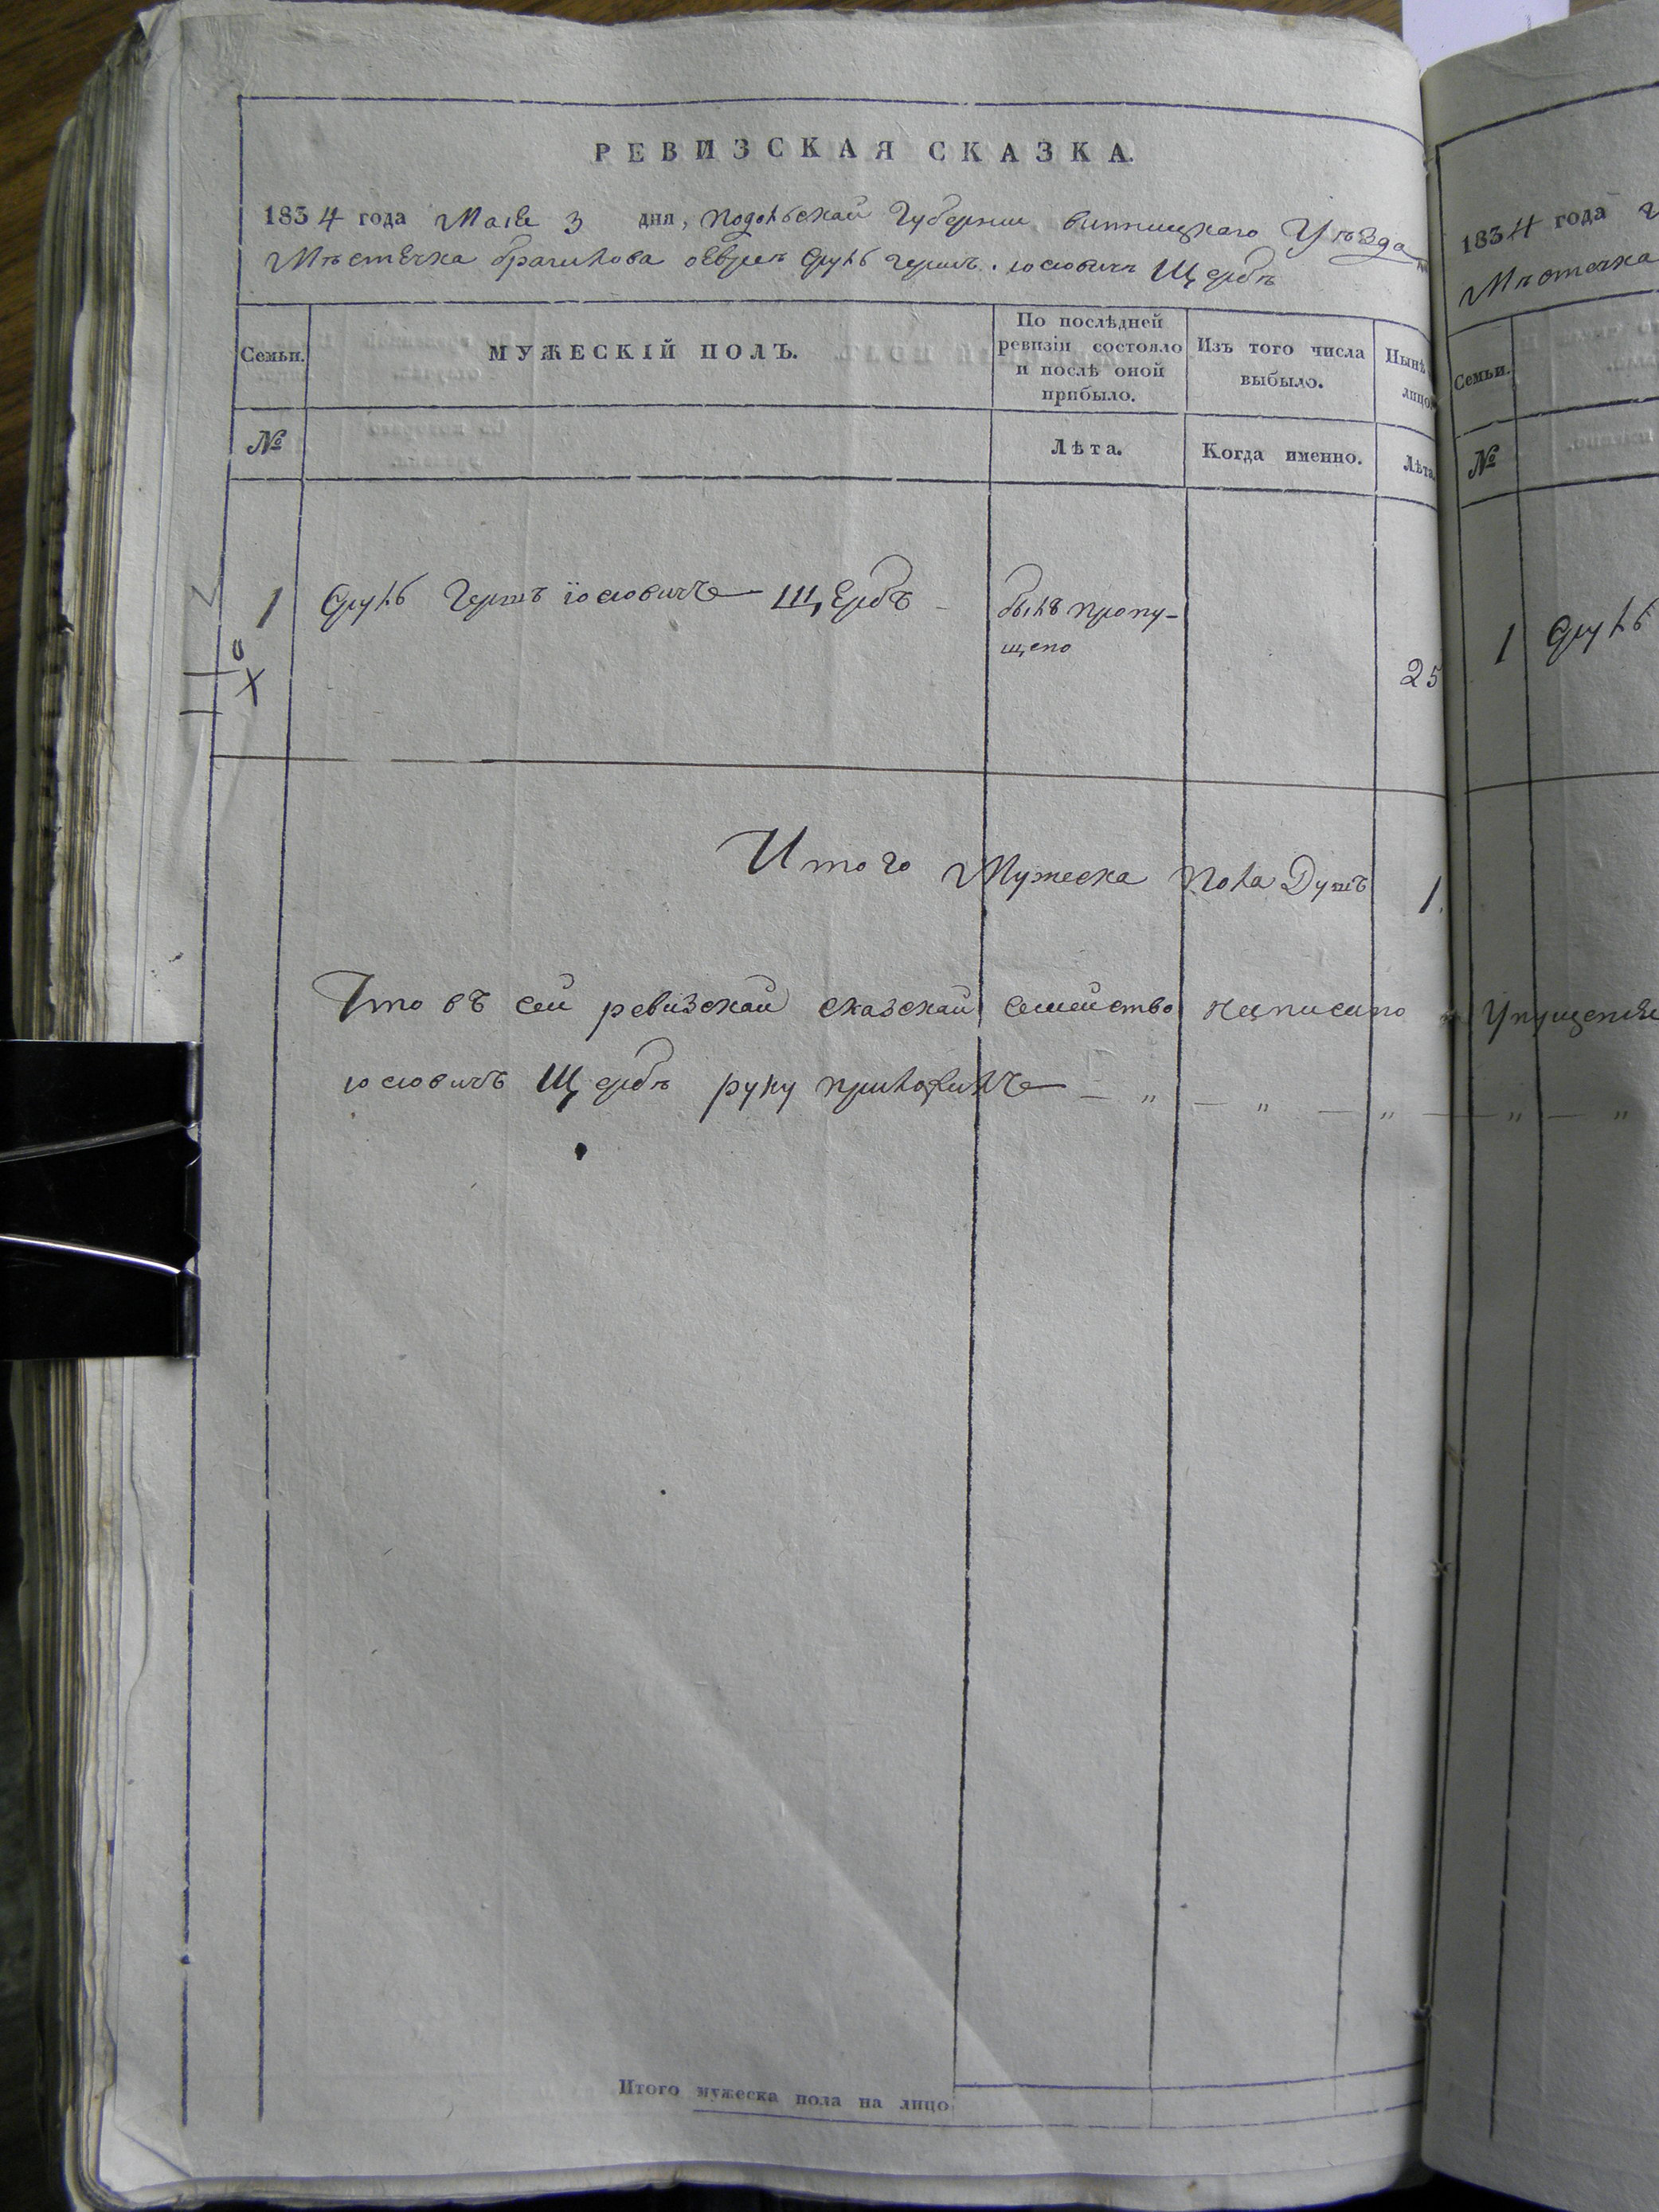 РЕВИЗСКАЯ СКАЗКА.
1834 года Маія 3 дня, подольской Губерніи винницкаго Уѣзда
Мѣстечка браилова оЕврѣѣ Сруль герш. Іосіовичъ Щербъ
Семьи.
МУЖЕСКІЙ ПОЛЪ.
По послѣдней ревизіи состояло и послѣ оной прибыло.
Изъ того числа выбыло.
Нынѣ лицо
№
Лѣта.
Когда именно.
Лѣта
1 Сруль Гершъ іосіовичъ Щербъ
былъ пропу-
щено
25
о
X
Итого Мужеска пола Душъ 1.
Что въ сей ревизской сказской семейство написано
іосіовичъ Щербъ руку приложилъ — „ — „ — „ — „ — „
Итого мужеска пола на лицо
1834 года
Мѣстечка
Семьи.
№
1 Сруль
Упущеніе